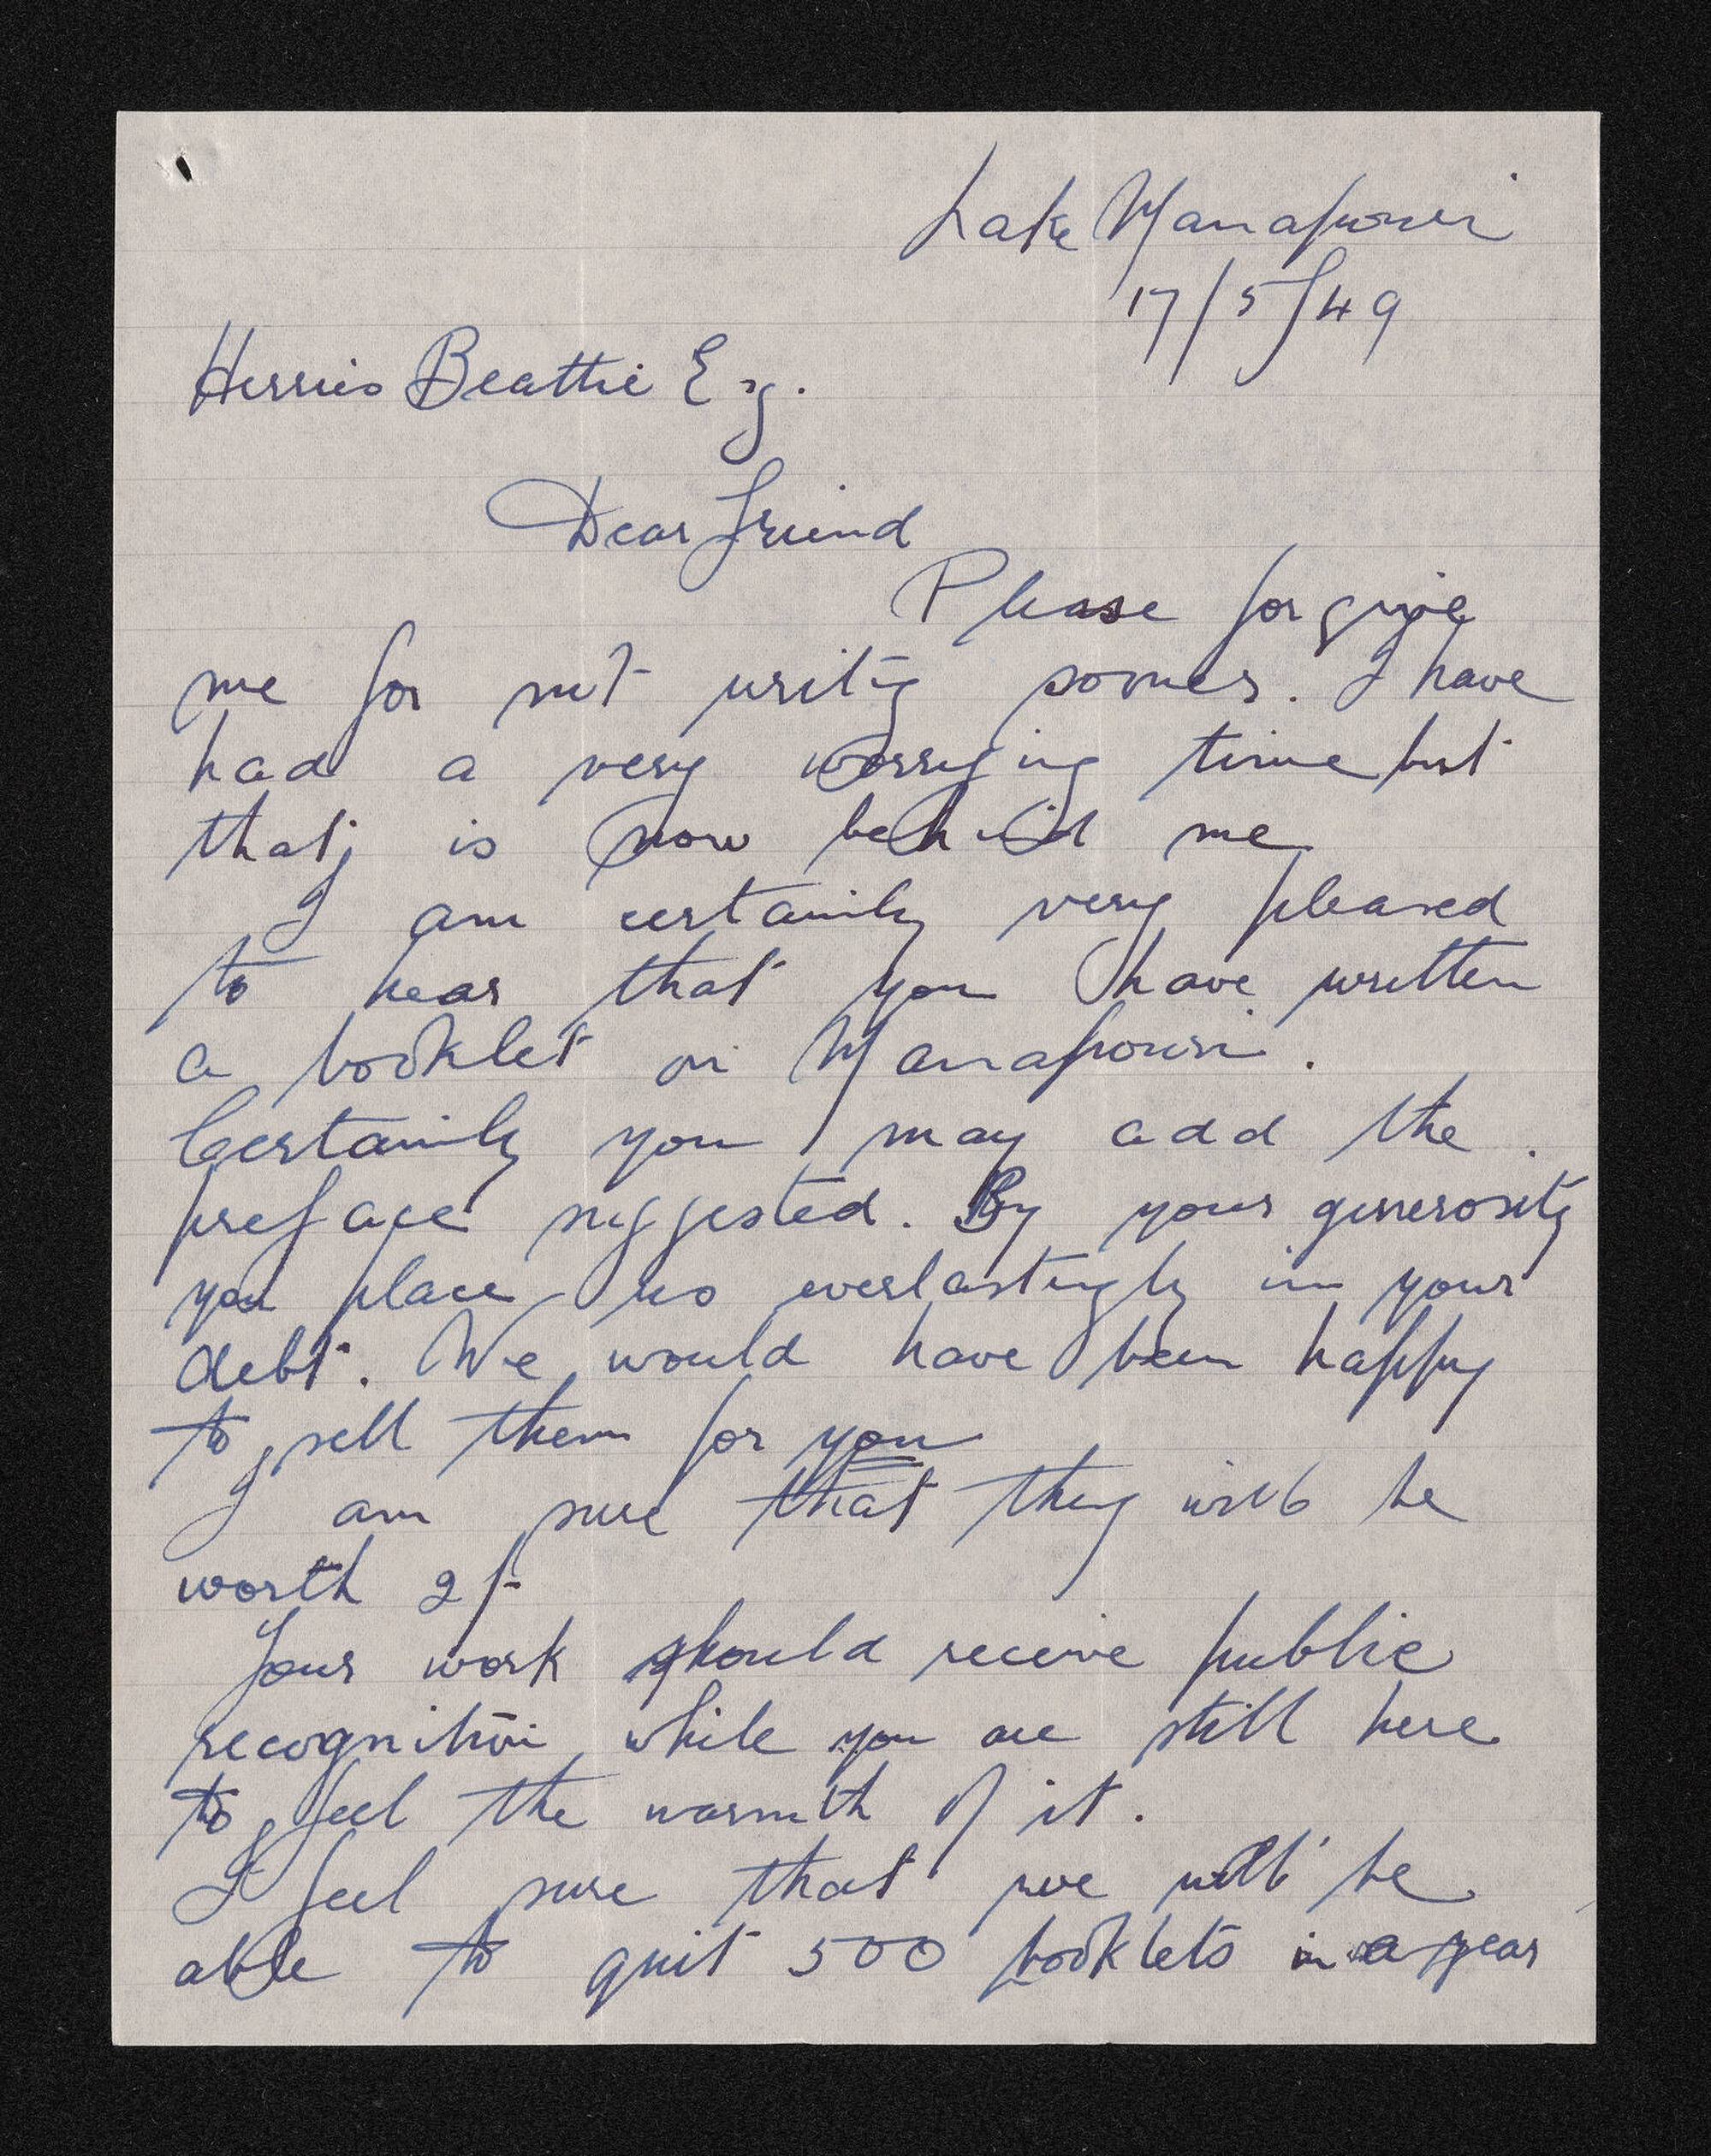 Lake Manapouri
17/5/49
Herries Beattie Esq.
Dear friend
Please forgive
me for not writing sooner. I have
had a very worrying time but
that is now behind me
I am certainly very pleased
to hear that you have written
a booklet on Manapouri.
Certainly you may add the
preface suggested. By your generosity
you place us everlastingly in your
debt. We would have been happy
to sell them for you
I am sure that they will be
worth 2/-
Your work should receive public
recognition while you are still here
to feel the warmth of it.
I feel sure that we will be
able to quit 500 booklets in a year